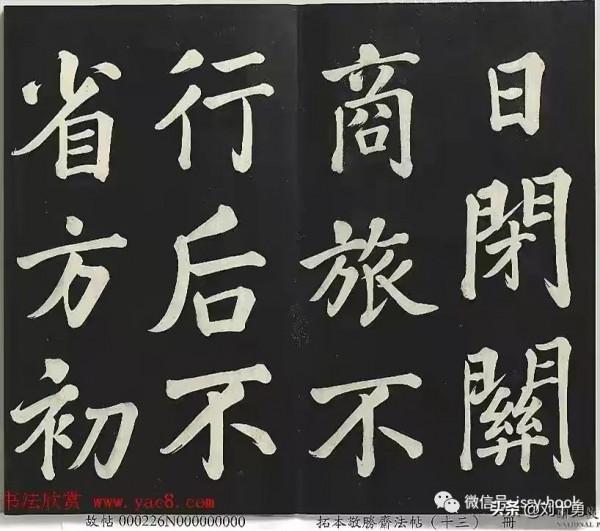 日閉關
商旅不
行后不
省方初
书法欣赏 www.yac8.com
故帖 000226N000000000
拓本敬勝齋法帖（十三） 冊
微信号: issy-hook
头条 @刘十勇
NATIONAL